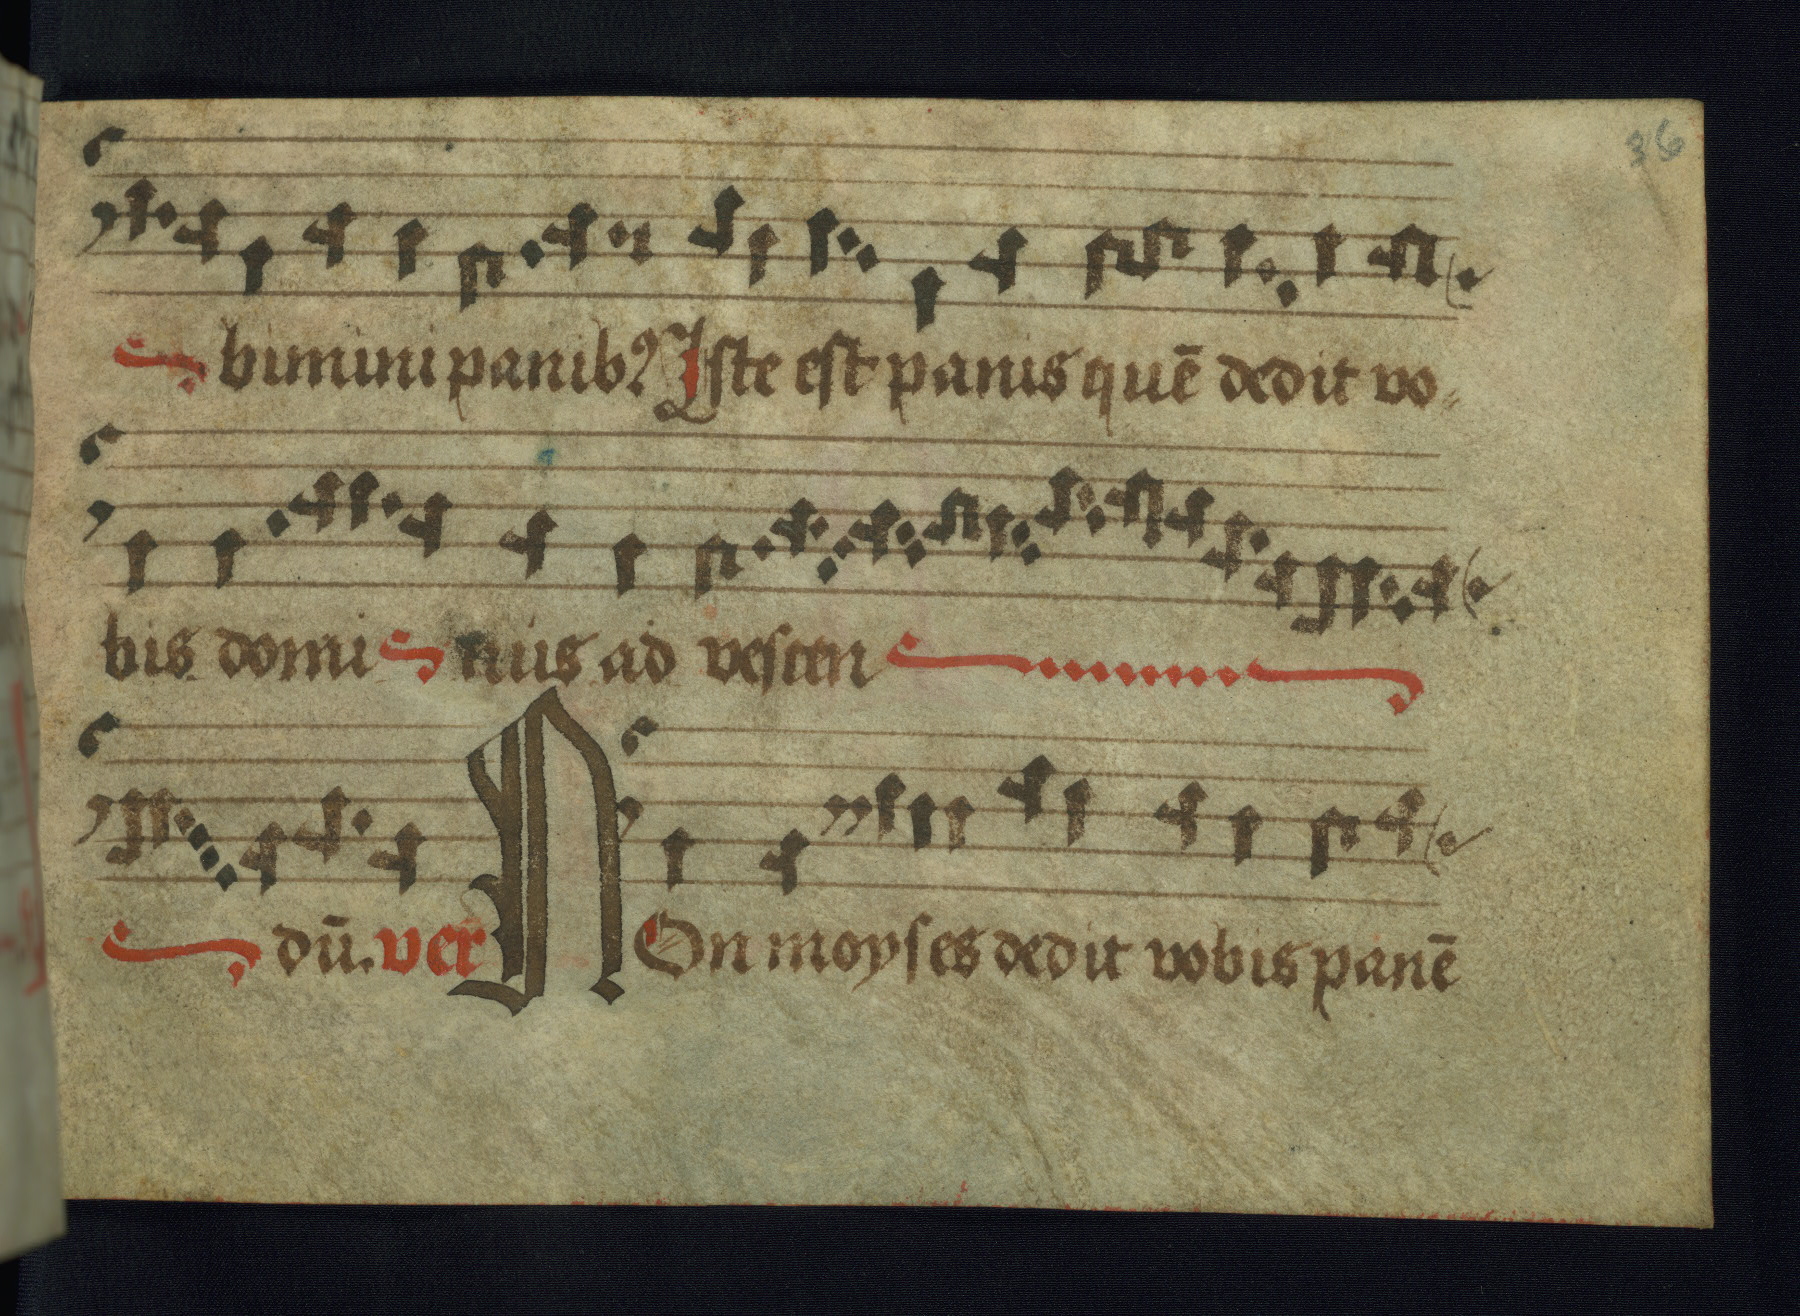 36
bimini panibꝰ Iste est panis quē dedit vo
bis domi nus ad vescen
dū. ver NOn moyses dedit vobis panē